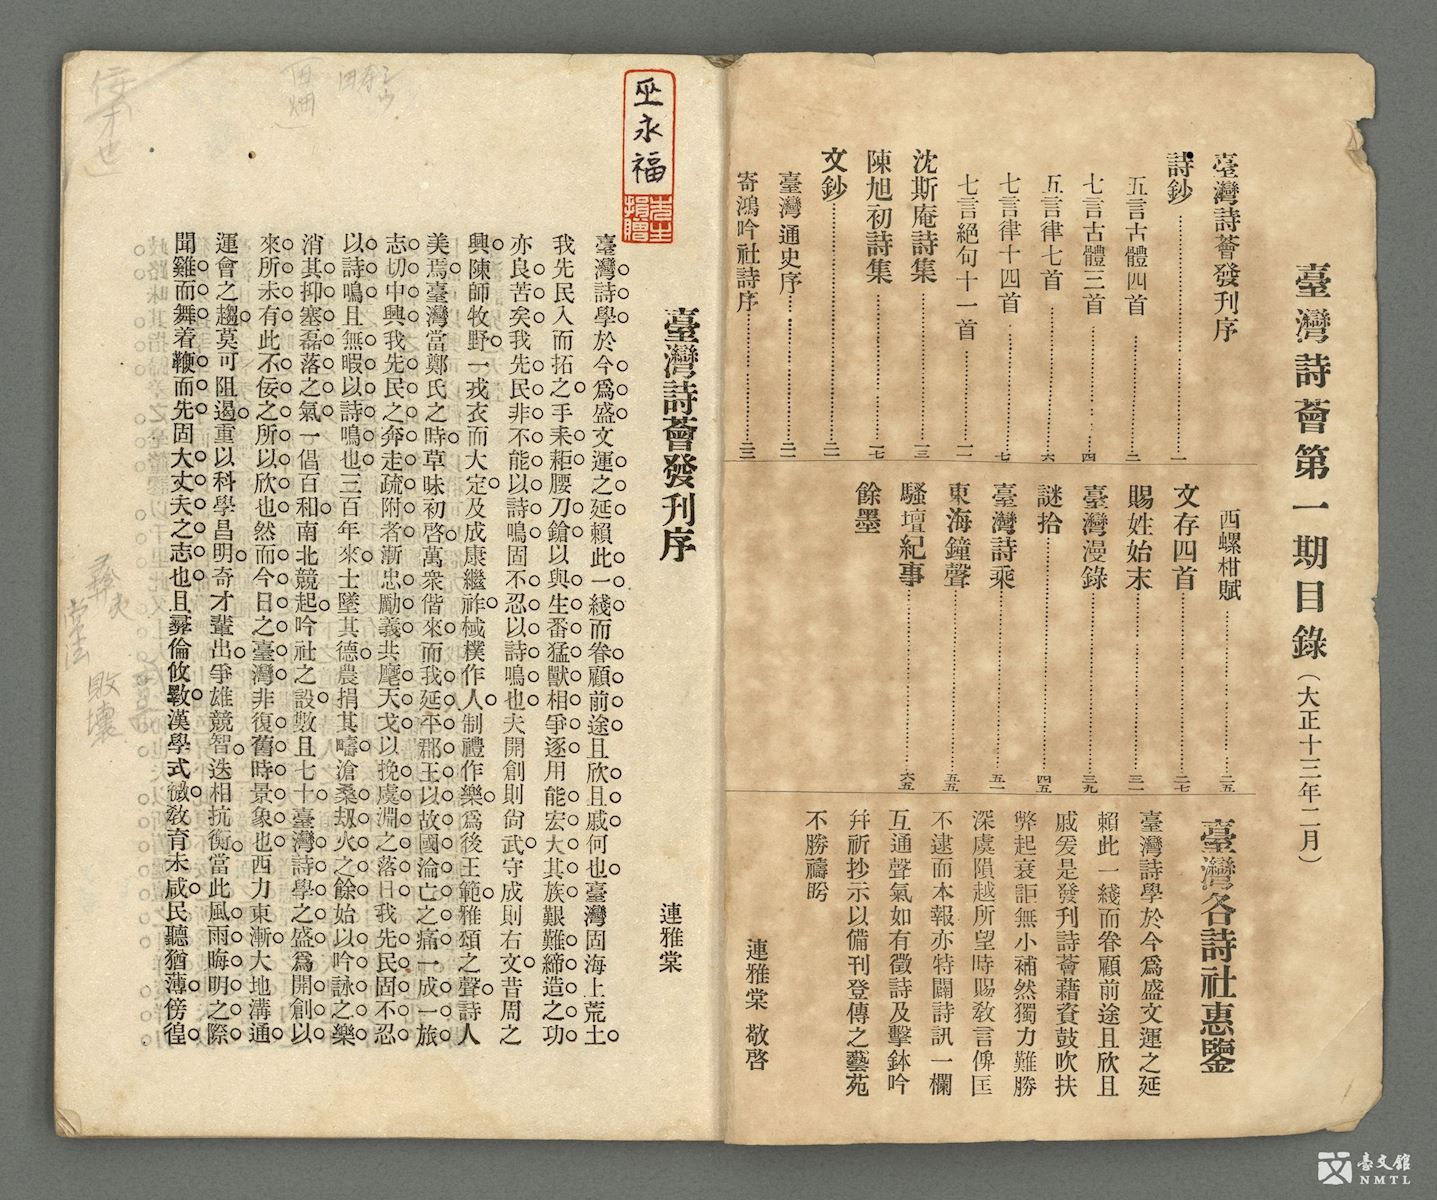 臺灣詩薈第一期目錄（大正十三年二月）
臺灣詩薈發刊序
詩鈔……一
五言古體四首……二
七言古體三首……四
五言律七首……六
七言律十四首……七
七言絕句十一首……一一
沈斯庵詩集……一三
陳旭初詩集……一七
文鈔……二一
臺灣通史序……二一
寄鴻吟社詩序……二三
西螺柑賦……二五
文存四首……二七
賜姓始末……三一
臺灣漫錄……三九
謎拾……四五
臺灣詩乘……五一
東海鐘聲……五五
騷壇紀事……六五
餘墨
臺灣各詩社惠鑒
臺灣詩學於今爲盛文運之延
賴此一綫而眷顧前途且欣且
戚爰是發刊詩薈藉資鼓吹扶
弊起衰詎無小補然獨力難勝
深虞隕越所望時賜敎言俾匡
不逮而本報亦特闢詩訊一欄
互通聲氣如有徵詩及擊鉢吟
幷祈抄示以備刊登傳之藝苑
不勝禱盼
連雅棠 敬啓
巫永福
先生
捐贈
臺灣詩薈發刊序
連雅棠
臺灣詩學於今爲盛文運之延賴此一綫而眷顧前途且欣且戚何也臺灣固海上荒土
我先民入而拓之手耒耟腰刀鎗以與生番猛獸相爭逐用能宏大其族艱難締造之功
亦良苦矣我先民非不能以詩鳴固不忍以詩鳴也夫開創則尙武守成則右文昔周之
興陳師牧野一戎衣而大定及成康繼祚棫樸作人制禮作樂爲後王範雅頌之聲詩人
美焉臺灣當鄭氏之時草昧初啓萬衆偕來而我延平郡王以故國淪亡之痛一成一旅
志切中興我先民之奔走疏附者漸忠勵義共麾天戈以挽虞淵之落日我先民固不忍
以詩鳴且無暇以詩鳴也三百年來士墜其德農捐其疇滄桑刼火之餘始以吟詠之樂
消其抑塞磊落之氣一倡百和南北競起吟社之設數且七十臺灣詩學之盛爲開創以
來所未有此不佞之所以欣也然而今日之臺灣非復舊時景象也西力東漸大地溝通
運會之趨莫可阻遏重以科學昌明奇才輩出爭雄競智迭相抗衡當此風雨晦明之際
聞雞而舞着鞭而先固大丈夫之志也且彛倫攸斁漢學式微敎育未咸民聽猶薄傍徨
敗壞
臺文館
NMTL